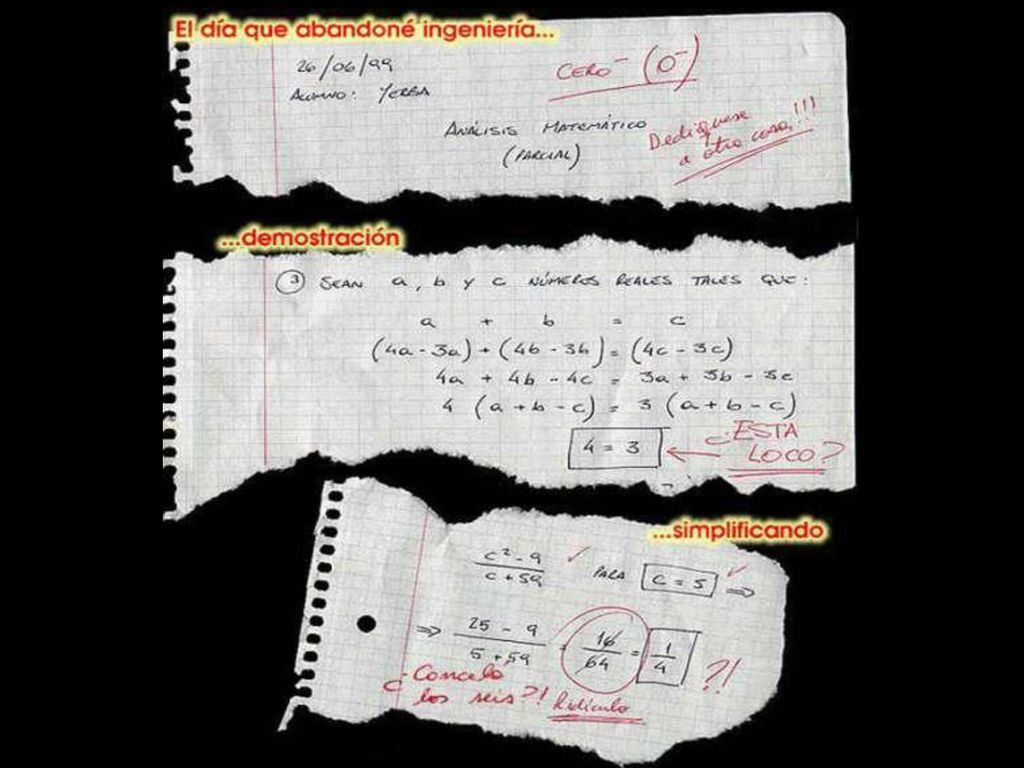 El día que abandoné ingeniería...
26/06/99
CERO⁻ (0⁻)
ALUMNO: YERBA
ANÁLISIS MATEMÁTICO
(PARCIAL)
Dedíquese
a otra cosa!!!
...demostración
③ SEAN a, b Y c NÚMEROS REALES TALES QUE:
a + b = c
(4a - 3a) + (4b - 3b) = (4c - 3c)
4a + 4b - 4c = 3a + 3b - 3c
4 (a + b - c) = 3 (a + b - c)
4 = 3 ← ¿ESTA
LOCO?
...simplificando
c² - 9 / c + 59 ✓ PARA c = 5 ✓ ⇒
⇒ 25 - 9 / 5 + 59 = 16 / 64 = 1 / 4 ?!
¿Cancela
los seis?! Ridículo